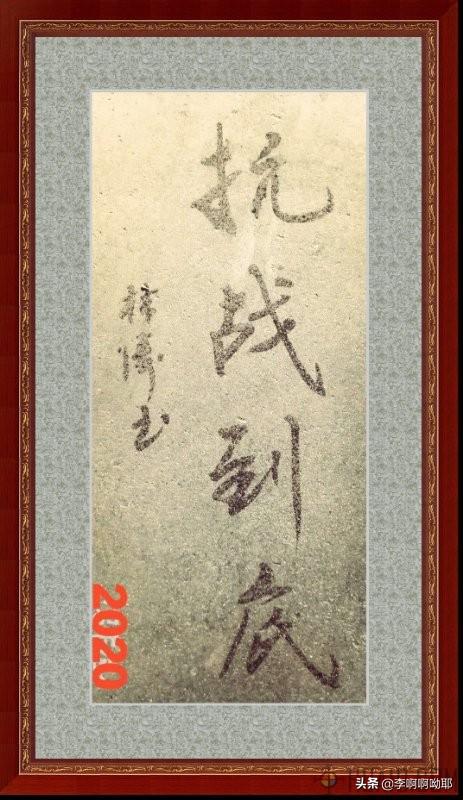 抗战到底
书
2020
头条 @李啊啊呦耶